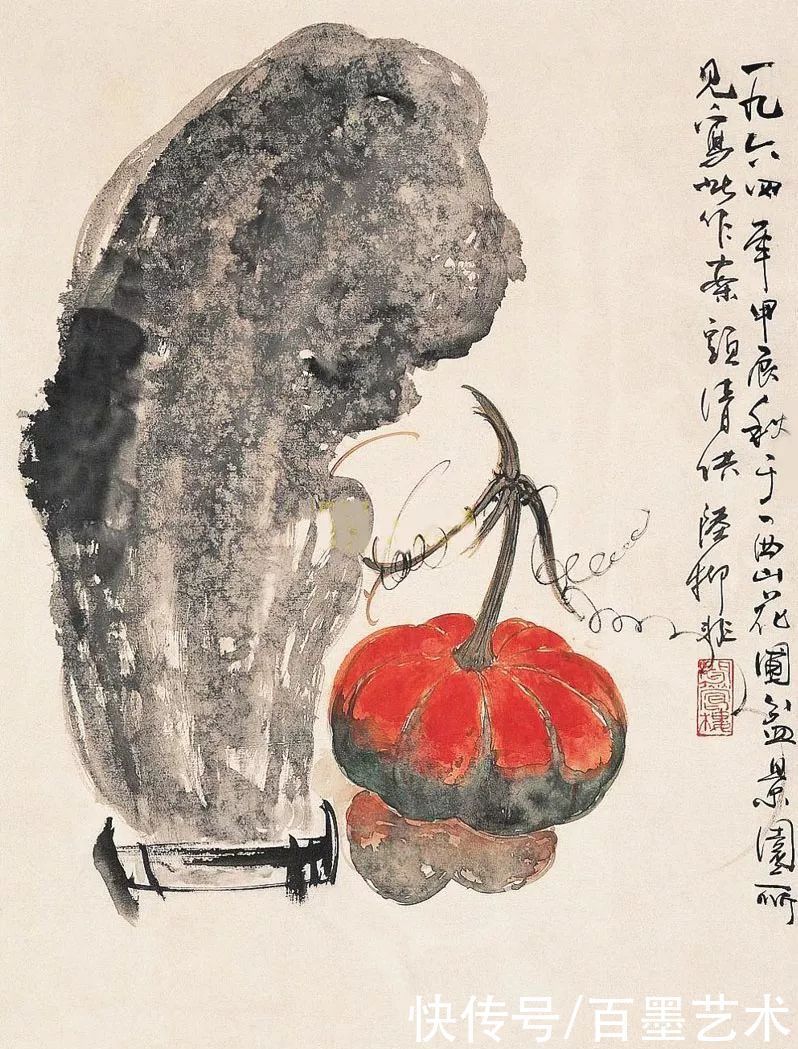 一九六四年甲辰秋于西山花圃盆景園所
見寫此作案頭清供 陸抑非
快传号/百墨艺术